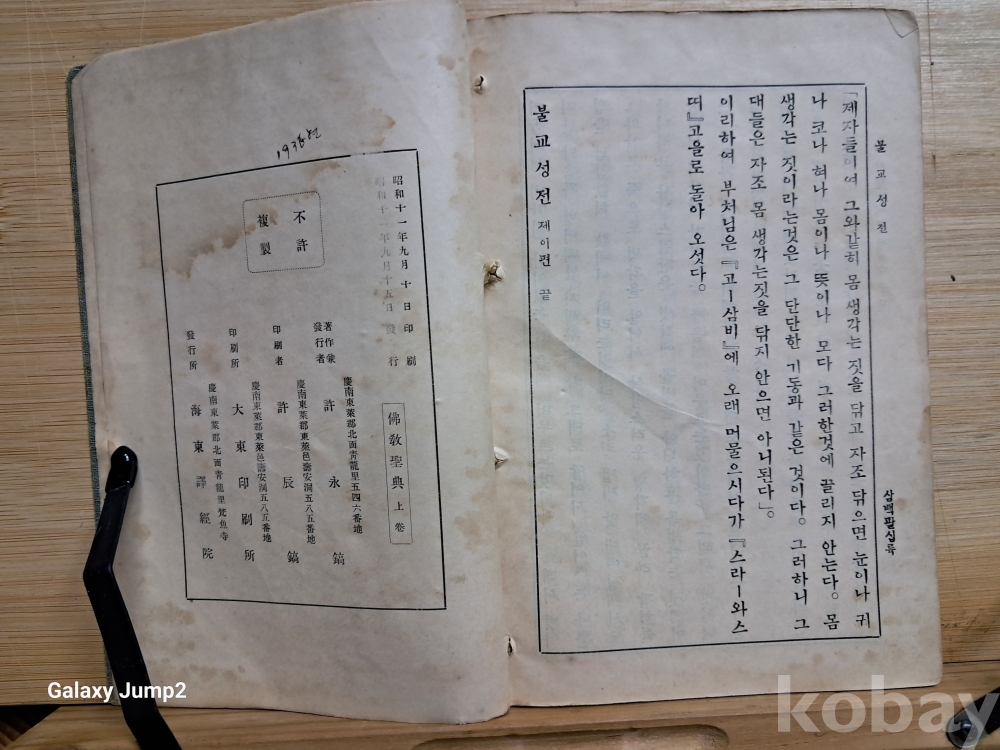 불교성전
삼백팔십륙
「제자들이여 그와같히 몸 생각는 짓을 닦고 자조 닦으면 눈이나 귀
나 코나 혀나 몸이나 뜻이나 모다 그러한것에 끌리지 안는다。 몸
생각는 짓이라는것은 그 단단한 기동과 같은 것이다。 그러하니 그
대들은 자조 몸 생각는짓을 닦지 안으면 아니된다」。
이리하여 부처님은 『고ー삼비』에 오래 머물으시다가 『스라ー와스
띠』고을로 돌아 오섯다。
불교성전 제이편 끝
1936년
昭和十一年九月十日印刷
昭和十一年九月十五日發行
不許
複製
佛敎聖典 上卷
慶南東萊郡北面靑龍里五四六番地
著作兼
發行者 許永鎬
慶南東萊郡東萊邑壽安洞五八五番地
印刷者 許辰鎬
慶南東萊郡東萊邑壽安洞五八五番地
印刷所 大東印刷所
慶南東萊郡北面靑龍里梵魚寺
發行所 海東譯經院
Galaxy Jump2
kobay